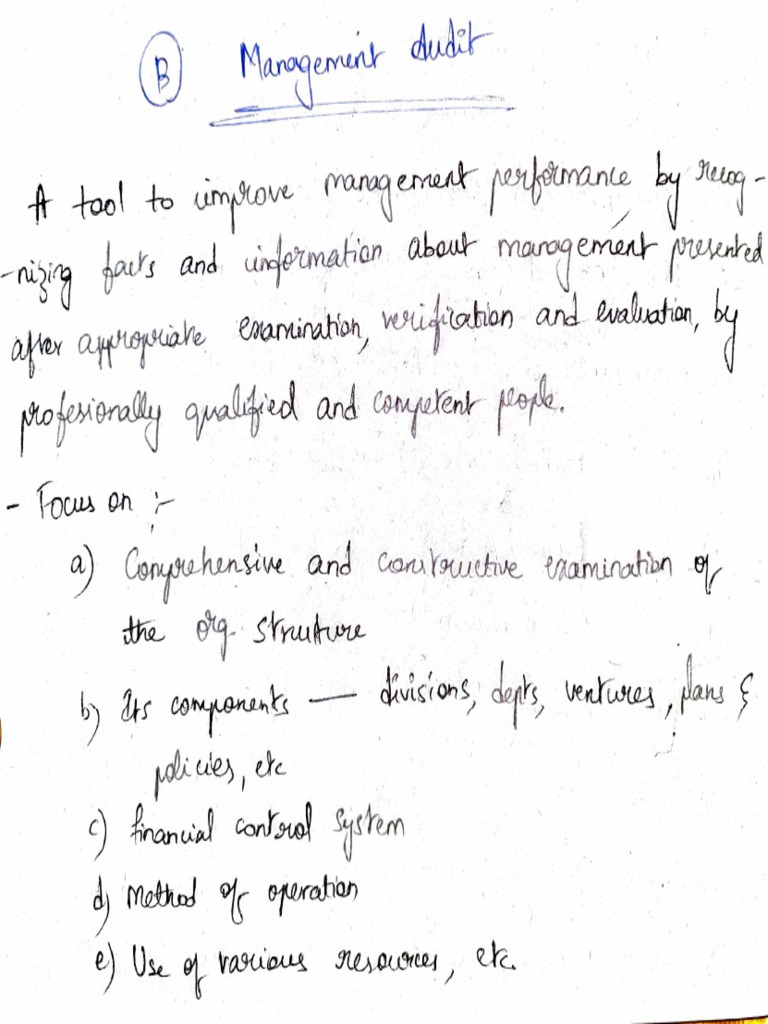 B Management Audit
A tool to improve management performance by recog-
-nizing facts and information about management presented
after appropriate examination, verification and evaluation, by
profesionally qualified and competent people.
- Focus on :-
a) Comprehensive and constructive examination of
the org. structure
b) Its components — divisions, depts, ventures, plans &
policies, etc
c) financial control system
d) Method of operation
e) Use of various resources, etc.